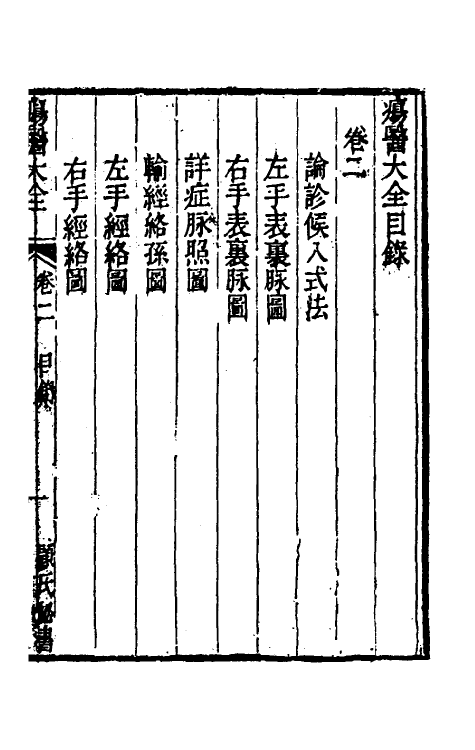 瘍醫大全目錄
卷二
論診候入式法
左手表裏脉圖
右手表裏脉圖
詳症脉照圖
輪經絡孫圖
左手經絡圖
右手經絡圖
瘍醫大全 卷二 目錄 一 顧氏秘書